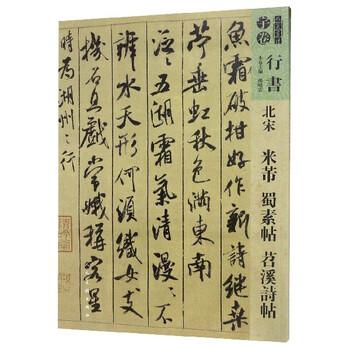 千卷
行書
北宋 米芾 蜀素帖 苕溪詩帖
魚霜破柑好作新詩継桑
苧垂虹秋色滿東南
泛〻五湖霜氣清漫〻不
辨水天形何須織女支
機石且戲常娥稱客星
時為湖州之行